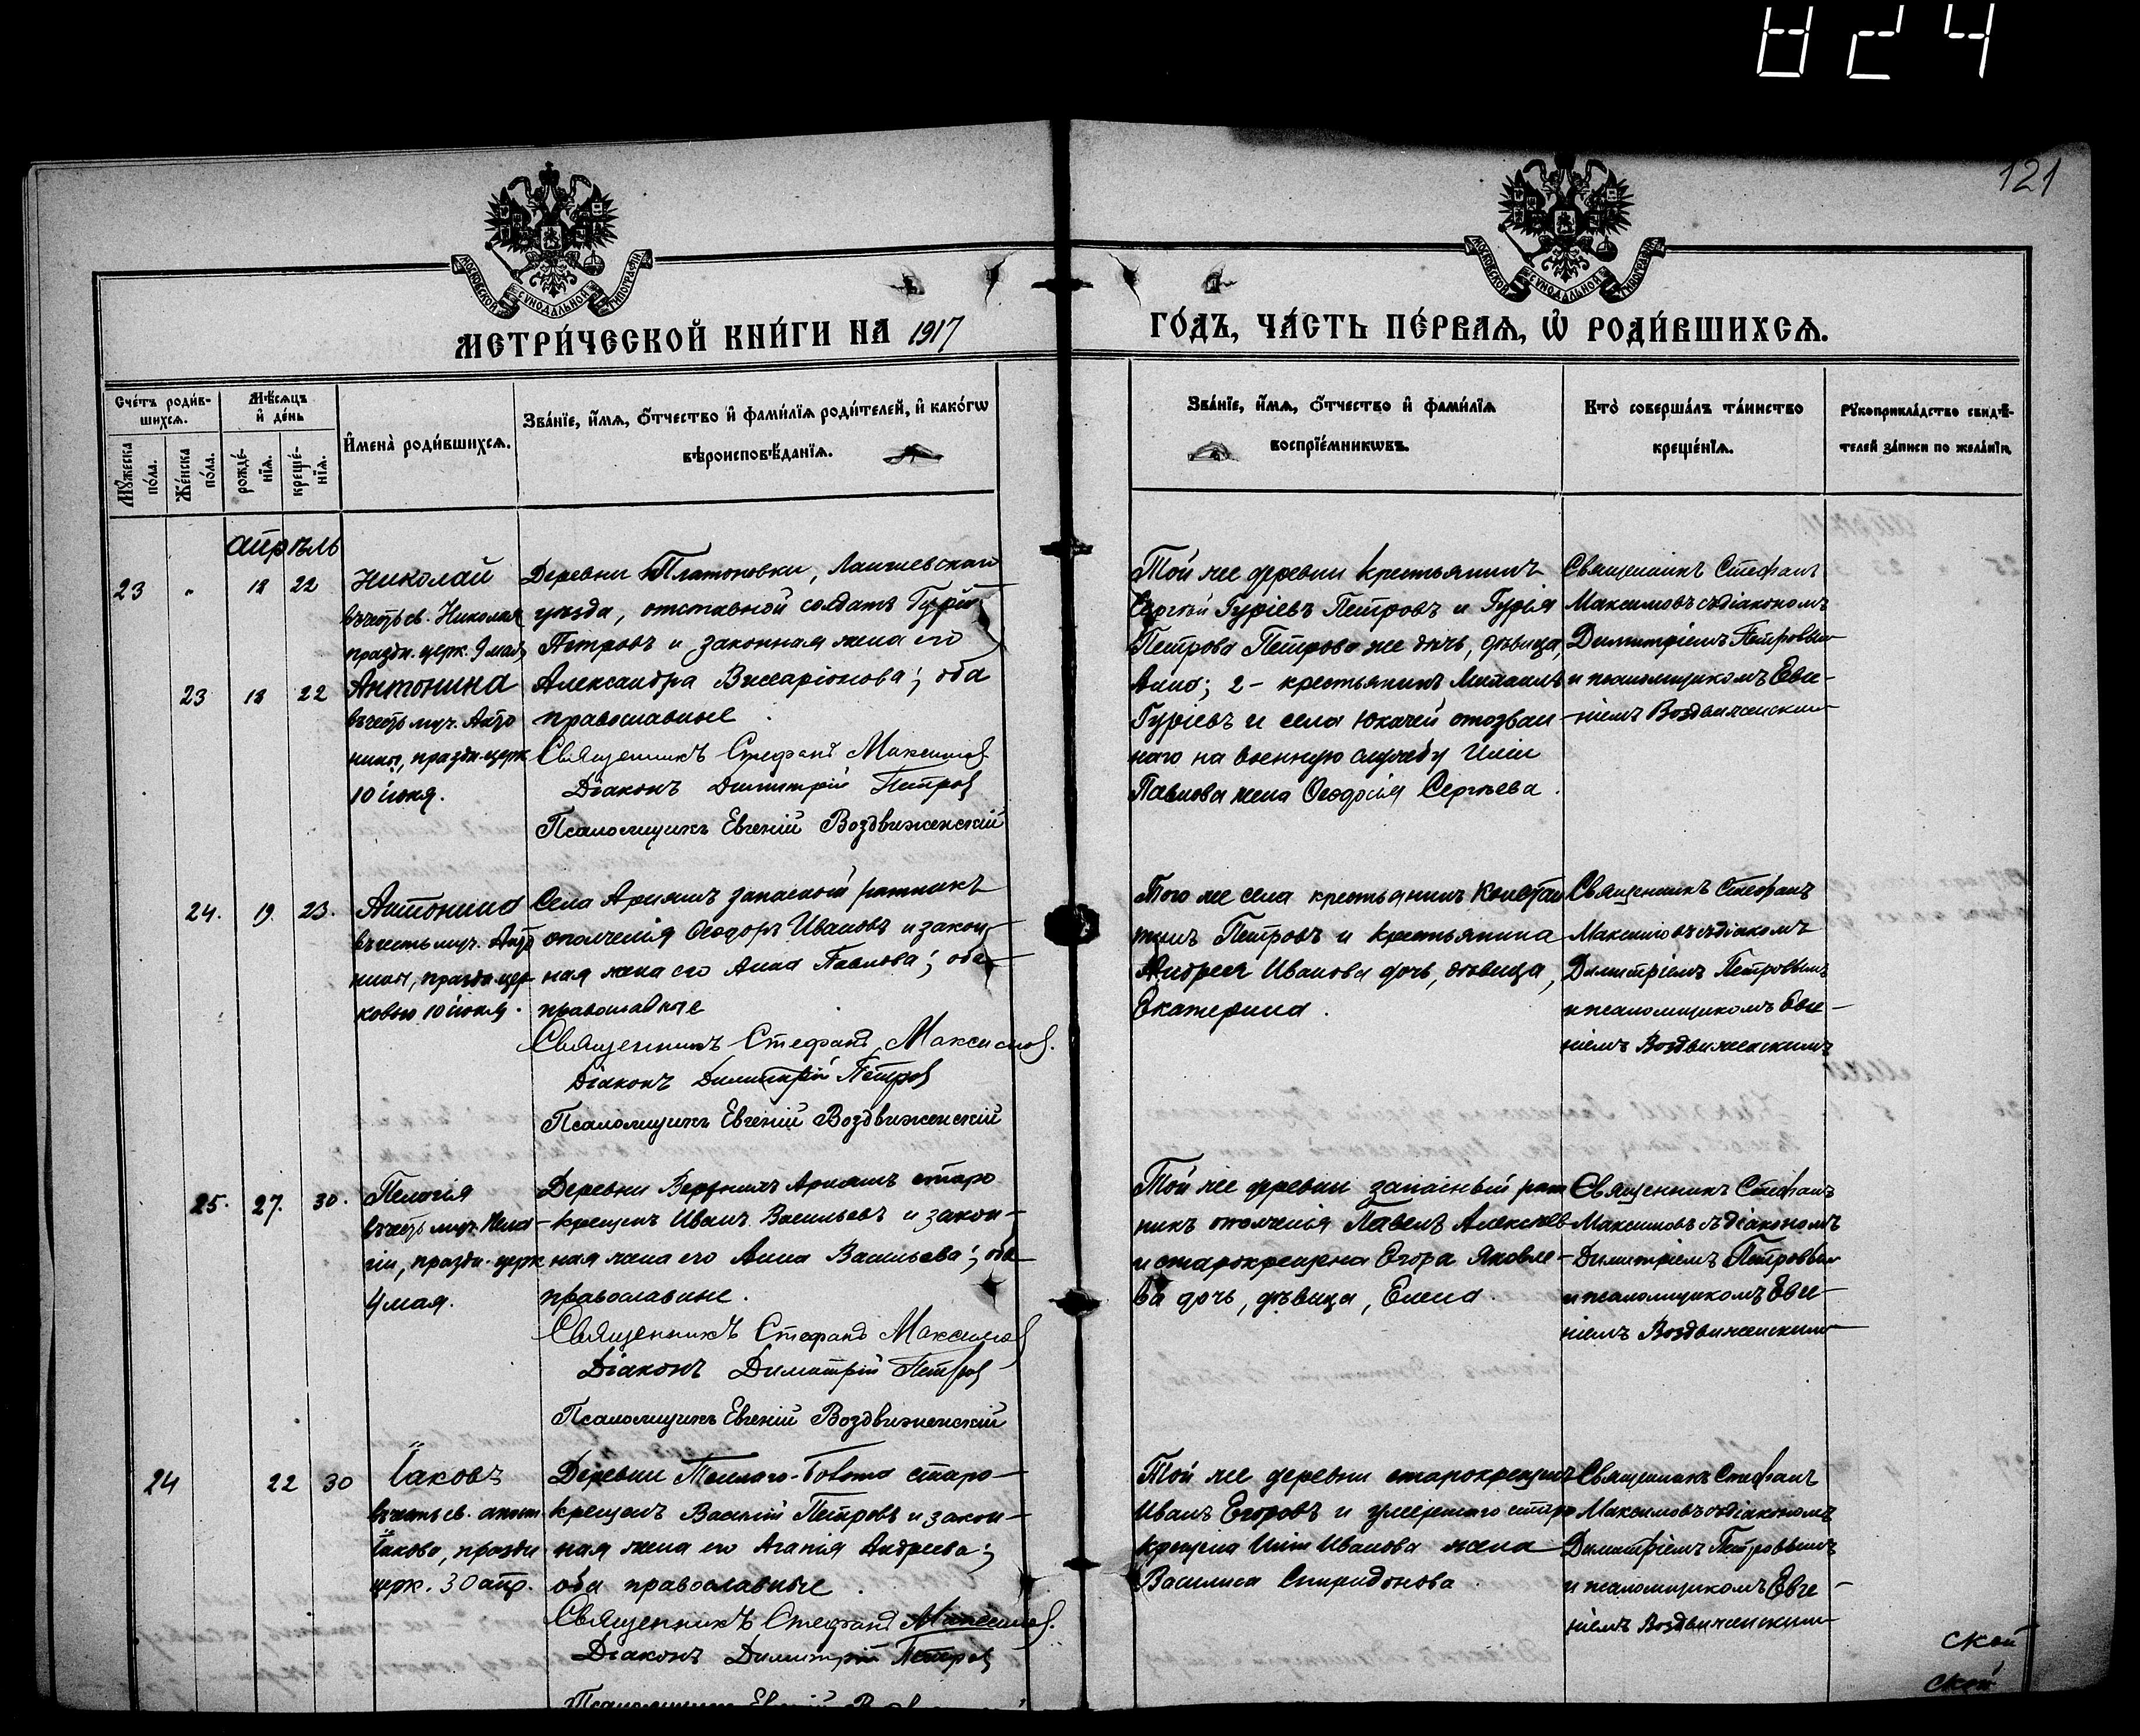 824
121
МОСКОВСКОЙ СѴНОДАЛЬНОЙ ТИПОГРАФІИ
МОСКОВСКОЙ СѴНОДАЛЬНОЙ ТИПОГРАФІИ
МЕТРИ́ЧЕСКОЙ КНИ́ГИ НА 1917
ГО́ДЪ, ЧА́СТЬ ПЕ́РВАЯ, Ѡ҆ РОДИ́ВШИХСЯ.
Сче́тъ роди́в-
шихся.
Мꙋжеска по́ла.
Же́нска по́ла.
Мѣ́сяцъ
и҆ де́нь
рожде́-
нїя.
креще́-
нїя.
И҆мена̀ роди́вшихся.
Зва́нїе, и҆́мя, ѻ҆́тчество и҆ фами́лїя роди́телей, и҆ како́гѡ
вѣроисповѣ́данїя.
Зва́нїе, и҆́мя, ѻ҆́тчество и҆ фами́лїя
воспрїе́мникѡвъ.
Кто̀ соверша́лъ та́инство
креще́нїя.
Рꙋкоприкла́дство свидѣ́-
телей за́писи по жела́нїю.
Апрѣль
23 " 18 22
Николай
въ честь св. Николая
праздн. церк. 9 мая
23 18 22
Антонина
въ честь муч. Анто
нины, праздн. церк
10 іюня.
Деревни Платоновки, Лаишевскаго
уѣзда, отставной солдатъ Гурій
Петровъ и законная жена его
Александра Виссаріонова; оба
православные.
Священникъ Стефанъ Максимов
Діаконъ Димитрій Петров
Псаломщикъ Евгеній Воздвиженскій
Той же деревни крестьянинъ
Сергѣй Гуріевъ Петровъ и Гурія
Петрова Петрова же дочь, дѣвица,
Анна; 2 - крестьянинъ Михаилъ
Гуріевъ и села Юкачей отозван-
наго на военную службу Иліи
Павлова жена Ѳеодосія Сергѣева.
Священникъ Стефанъ
Максимовъ съ діакономъ
Димитріемъ Петровым
и псаломщикомъ Евге-
ніемъ Воздвиженским
24. 19 23.
Антонина
въ честь муч. Анто
нины, праздн. цер
ковью 10 іюня.
Села запасной ратникъ
ополченія Ѳеодоръ Ивановъ и закон-
ная жена его Анна Павлова; оба
православные
Священникъ Стефанъ Максимов.
Діаконъ Димитрій Петров
Псаломщикъ Евгеній Воздвиженскій
Того же села крестьянинъ Констан
тинъ Петровъ и крестьянина
Андрея Иванова дочь, дѣвица,
Екатерина.
Священникъ Стефанъ
Максимовъ съ діакомъ
Димитріемъ Петровымъ
и псаломщикомъ Евге-
ніемъ Воздвиженскимъ
25. 27. 30.
Пелагія
въ честь муч. Пела-
гіи, праздн. церк
4 мая.
Деревни старо
крещенъ Иванъ Васильевъ и закон-
ная жена его Анна Васильева; оба
православные.
Священникъ Стефанъ Максимов
Діаконъ Димитрій Петров
Псаломщикъ Евгеній Воздвиженскій
Той же деревни запасный рат
никъ ополченія Павелъ Алексѣев
и старокрещена Егора Яковле-
ва дочь, дѣвица, Елена.
Священникъ Стефанъ
Максимовъ съ діакономъ
Димитріемъ Петровым
и псаломщикомъ Евге-
ніемъ Воздвиженским
24 22 30
Іаковъ
въ честь св. апост
Іакова, праздн
церк. 30 апр.
Деревни старо-
крещенъ Василій Петровъ и закон-
ная жена его Агапія Андреева;
оба православные.
Священникъ Стефанъ Максимов.
Діаконъ Димитрій Петров
Псаломщикъ Евгеній
Той же деревни старокрещенъ
Иванъ Егоровъ и умершаго старо
крещена Иліи Иванова жена
Василиса Спиридонова
Священникъ Стефанъ
Максимовъ съ діакономъ
Димитріемъ Петровымъ
и псаломщикомъ Евге-
ніемъ Воздвиженским
ской
ской